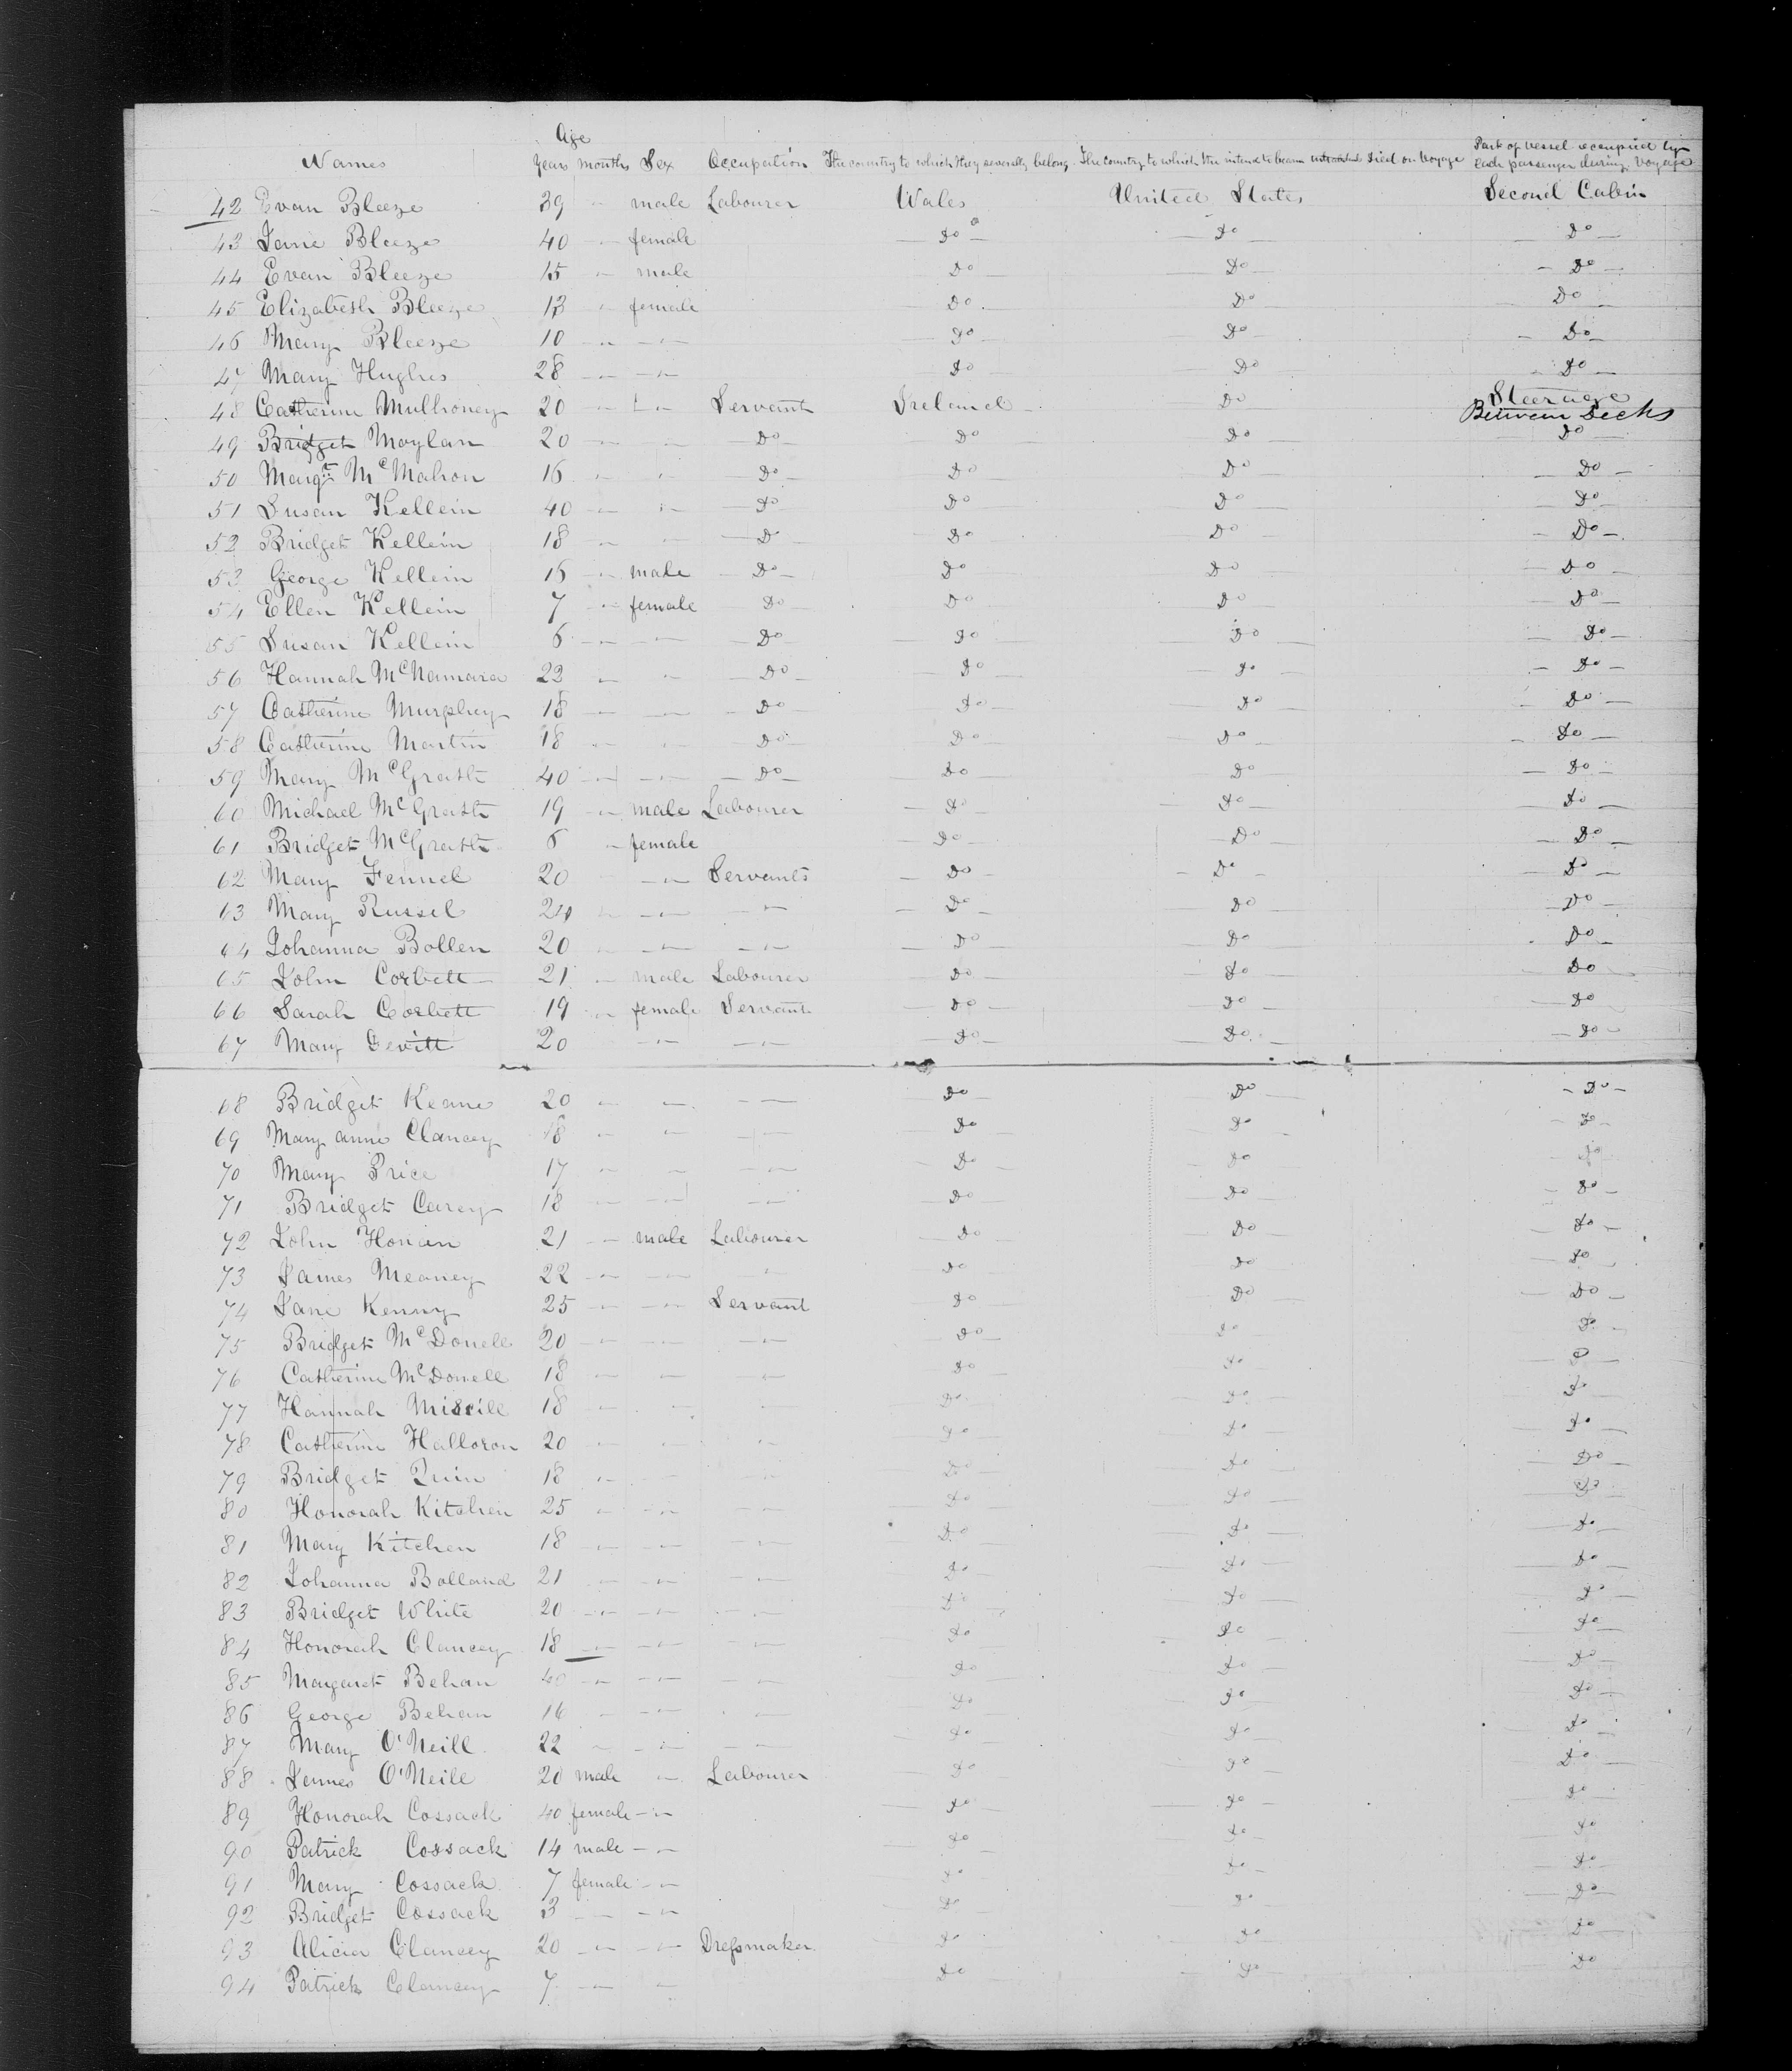 Age
Names years months Sex Occupation The country to which they severally belong. The country to which the intend to becom died on Voyage Part of vessel occupied by
each passenger during Voyage
42 Evan Bleeze 39 " male Labourer Wales United States Second Cabin
43 Jane Bleeze 40 " female Do Do Do
44 Evan Bleeze 15 " male Do Do Do
45 Elizabeth Bleeze 13 " female Do Do Do
46 Mary Bleeze 10 " " Do Do Do
47 Mary Hughes 28 " " Do Do Do
48 Catherine Mullroney 20 " " Servant Ireland Do Steerage
Between Decks
49 Bridget Moylan 20 " " Do Do Do Do
50 Margt McMahon 16 " " Do Do Do Do
51 Susan Kellein 40 " " Do Do Do Do
52 Bridget Kellein 18 " " Do Do Do Do
53 George Kellein 16 " male Do Do Do Do
54 Ellen Kellein 7 " female Do Do Do Do
55 Susan Kellein 6 " " Do Do Do Do
56 Hannah McNamara 22 " " Do Do Do Do
57 Catherine Murphey 18 " " Do Do Do Do
58 Catherine Martin 18 " " Do Do Do Do
59 Mary McGrath 40 " " Do Do Do Do
60 Michael McGrath 19 " male Labourer Do Do Do
61 Bridget McGrath 6 " female Do Do Do
62 Mary Fennel 20 " Servants Do Do Do
63 Mary Russel 24 " " " Do Do Do
64 Johanna Bollen 20 " " " Do Do Do
65 John Corbett 21 " male Labourer Do Do Do
66 Sarah Corbett 19 " female Servant Do Do Do
67 Mary Devitt 20 " " Do Do Do
68 Bridget Keane 20 " " " Do Do Do
69 Mary anne Clancey 18 " " " Do Do Do
70 Mary Price 17 " " " Do Do Do
71 Bridget Carey 18 " " " Do Do Do
72 John Honan 21 " male Labourer Do Do Do
73 James Meaney 22 " " " Do Do Do
74 Jane Kenny 25 " " Servant Do Do Do
75 Bridget McDonell 20 " " " Do Do Do
76 Catherine McDonell 18 " " " Do Do Do
77 Hannah 18 " " " Do Do Do
78 Catherine Halloron 20 " " " Do Do Do
79 Bridget Quin 18 " " " Do Do Do
80 Honorah Kitchen 25 " " " Do Do Do
81 Mary Kitchen 18 " " " Do Do Do
82 Johanna Bolland 21 " " " Do Do Do
83 Bridget White 20 " " " Do Do Do
84 Honorah Clancey 18 " " " Do Do Do
85 Margaret Behan 40 " " " Do Do Do
86 George Behan 16 " " " Do Do Do
87 Mary O'Neill 22 " " " Do Do Do
88 James O'Neill 20 male " Labourer Do Do Do
89 Honorah Cossack 40 female " Do Do Do
90 Patrick Cossack 14 male " Do Do Do
91 Mary Cossack 7 female " Do Do Do
92 Bridget Cossack 3 " " Do Do Do
93 Alicia Clancey 20 " " Dressmaker Do Do Do
94 Patrick Clancey 7 " " Do Do Do